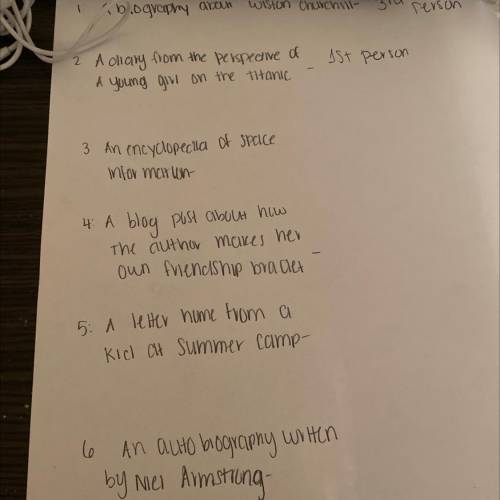 1 A biography about Wiston Churchill- 3rd person
2 A diary from the perspective of
A young girl on the titanic - 1st person
3 An encyclopedia of space
information-
4: A blog post about how
The author makes her
own friendship bracelet -
5: A letter home from a
Kid at Summer Camp-
6 An auto biography written
by Niel Armstrong-